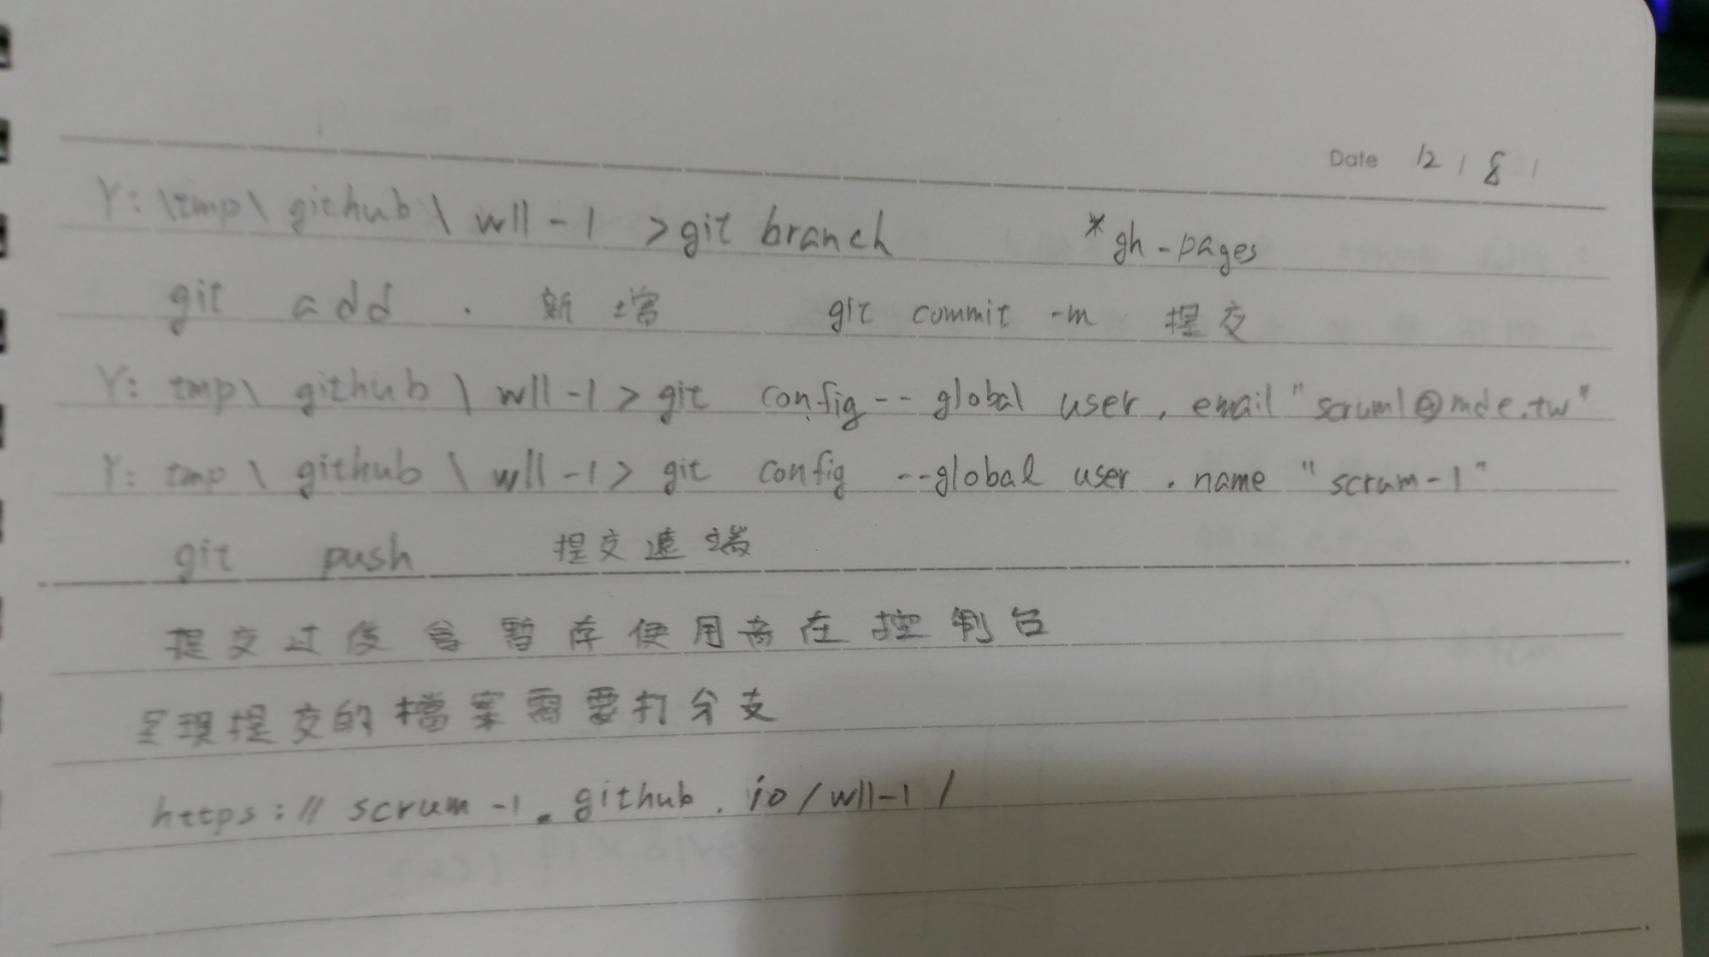 Date 12 / 8 /
Y: \tmp\ github \ w11-1 >git branch *gh-pages
git add . 新增 git commit -m 提交
Y: tmp\ github \ w11-1> git config -- global user . email "scrum1@mde.tw"
Y: tmp \ github \ w11-1> git config --global user . name "scrum-1"
git push 提交遠端
提交过後會暫存使用者在控制台
呈現提交的檔案需要打分支
https://scrum-1.github.io/w11-1/